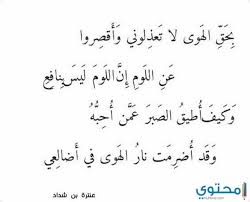 بِحَقِّ الهَوى لا تَعذِلوني وَأَقصِروا
عَنِ اللَومِ إِنَّ اللَومَ لَيسَ بِنافِعِ
وَكَيفَ أُطيقُ الصَبرَ عَمَّن أُحِبُّهُ
وَقَد أُضرِمَت نارُ الهَوى في أَضالِعي
عنترة بن شداد
محتوى